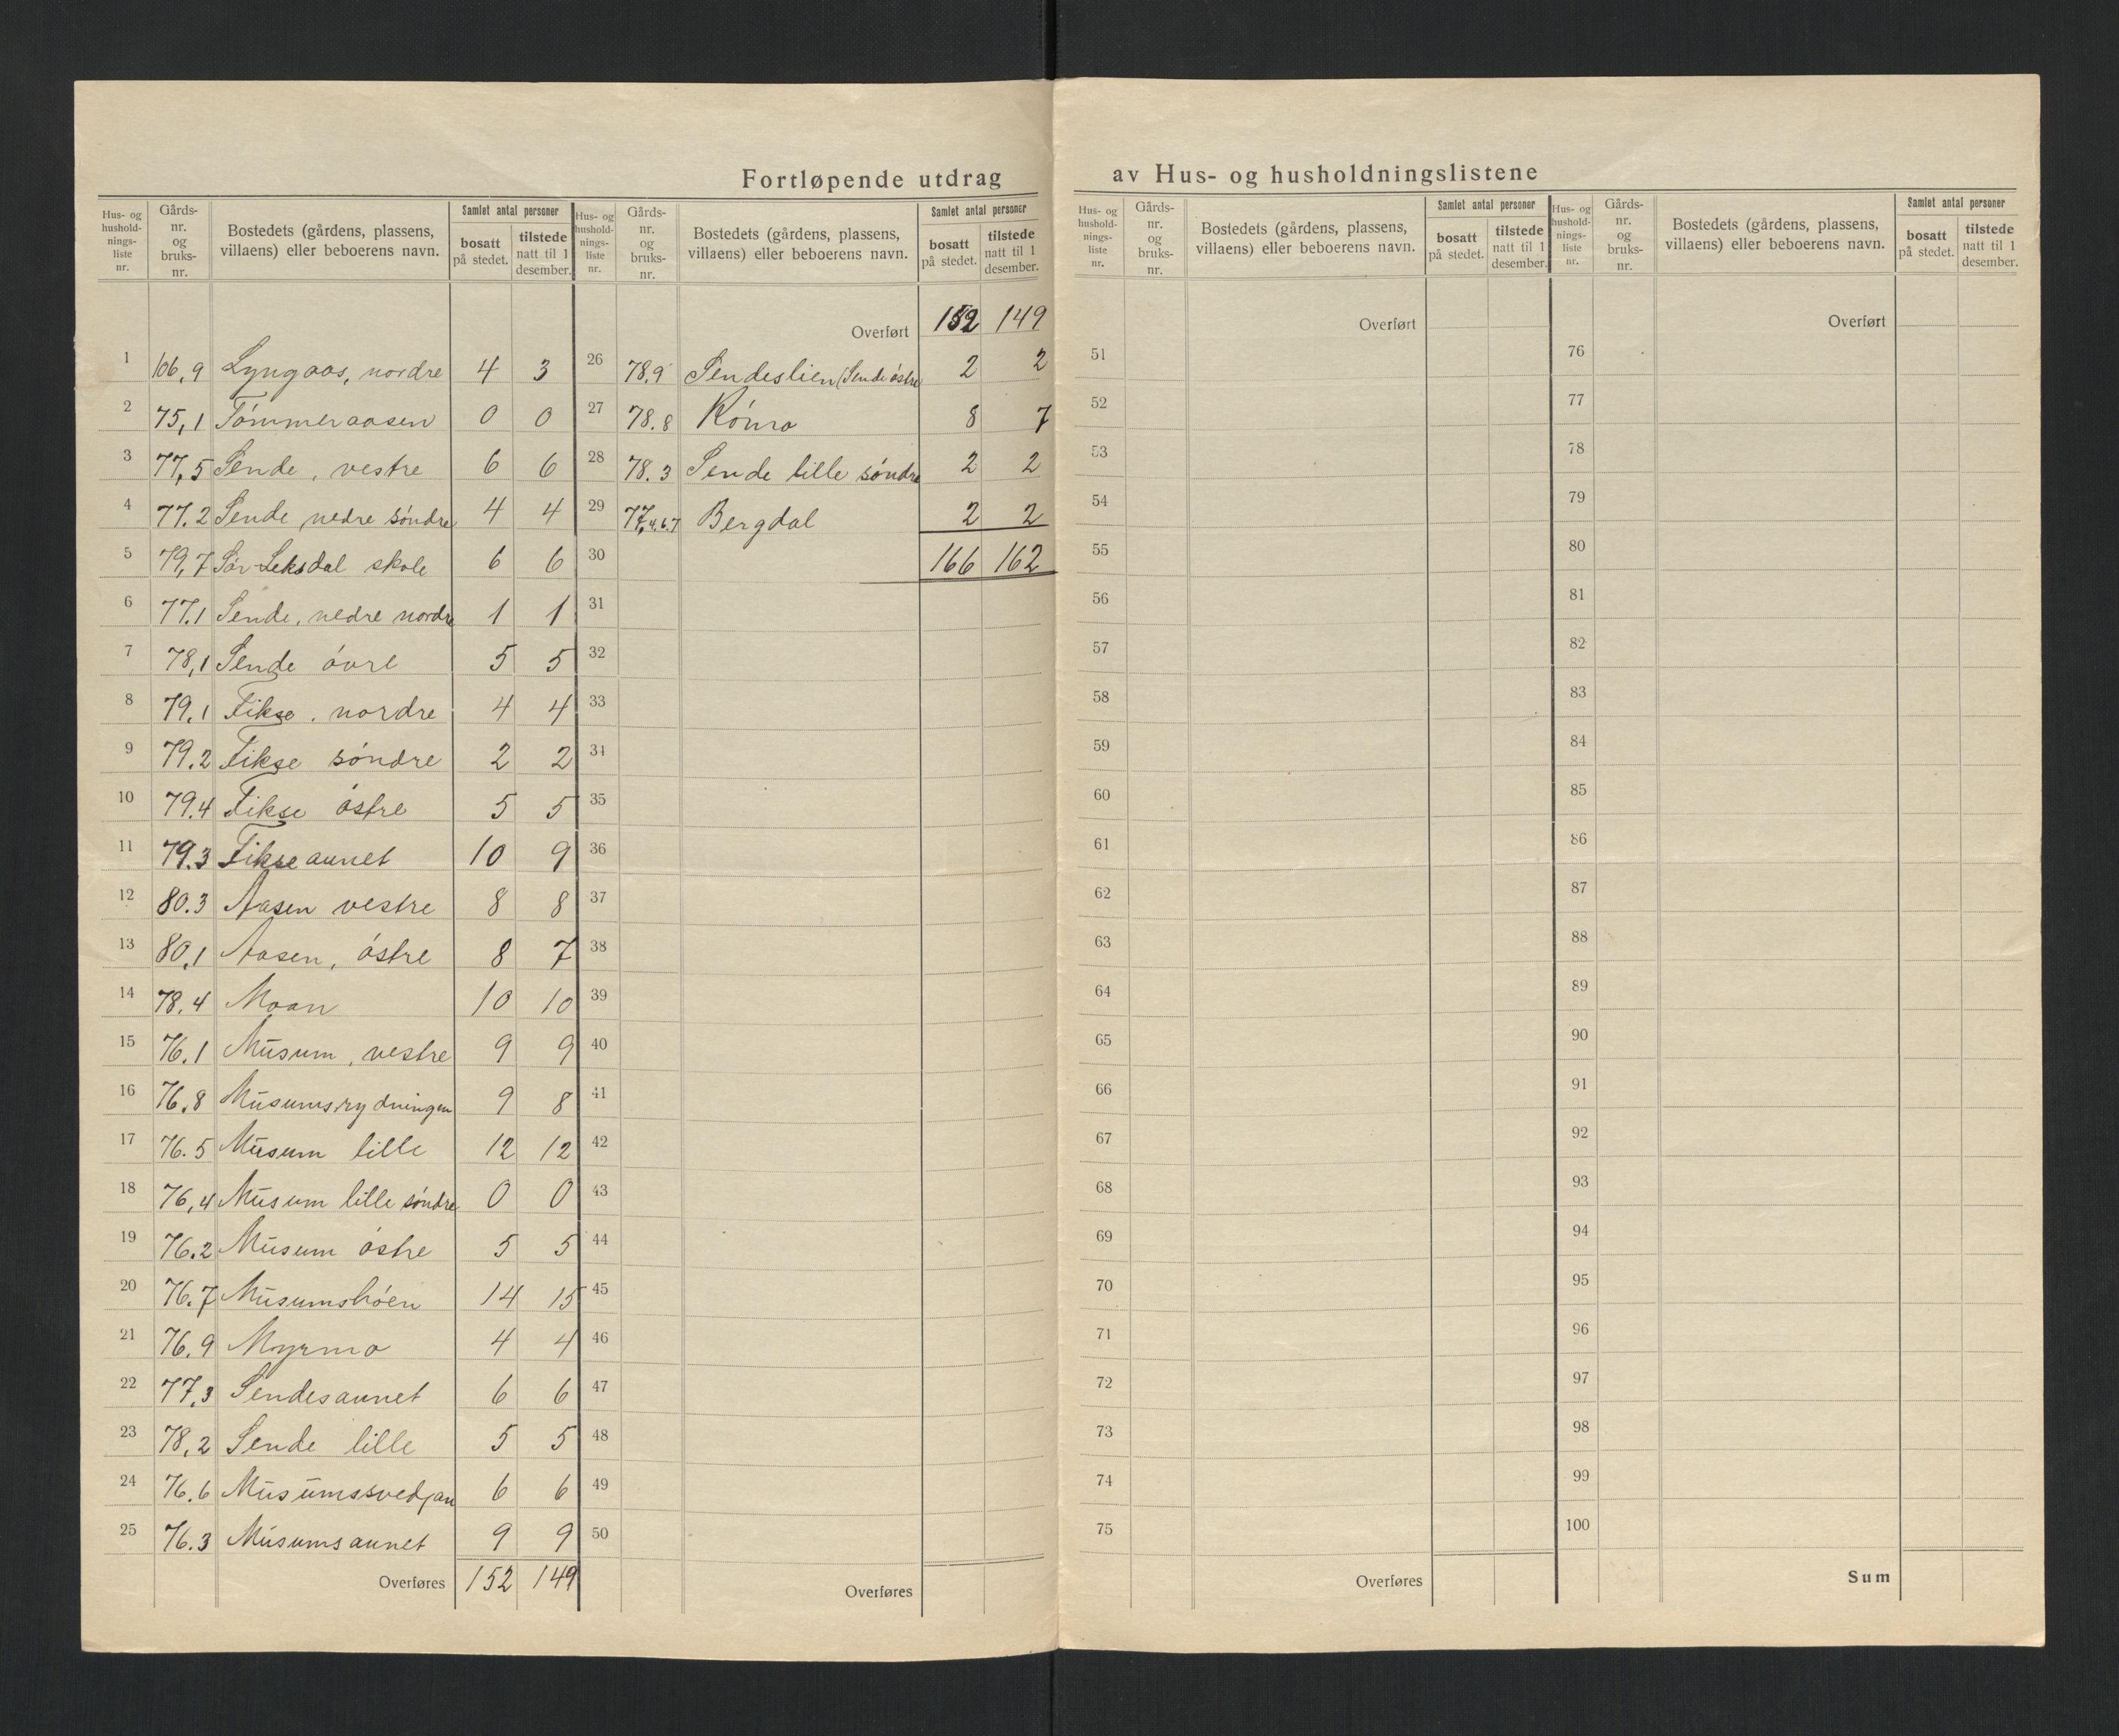 Fortløpende utdrag av Hus- og husholdningslistene
Hus- og hushold-nings-liste nr. Gårds-nr. og bruks-nr. Bostedets (gårdens, plassens, villaens) eller beboerens navn. Samlet antal personer bosatt på stedet. tilstede natt til 1 desember.
1 106,9 Lyngaas, nordre 4 3
2 75,1 Tømmeraasen 0 0
3 77,5 Sende, vestre 6 6
4 77.2 Sende nedre söndre 4 4
5 79,7 Sør-Leksdal skole 6 6
6 77.1 Sende, nedre nordre 1 1
7 78,1 Sende óvre 5 5
8 79.1 Tikse, nordre 4 4
9 79.2 Tikse sóndre 2 2
10 79.4 Tikse óstre 5 5
11 79.3 Tikseaunet 10 9
12 80.3 Aasen vestre 8 8
13 80,1 Aasen, óstre 8 7
14 78.4 Moan 10 10
15 76.1 Musum, vestre 9 9
16 76.8 Musumsrydningen 9 8
17 76.5 Musum lille 12 12
18 76,4 Musum lille sóndre 0 0
19 76.2 Musum óstre 5 5
20 76.7 Musumshóen 14 15
21 76.9 Myrmo 4 4
22 77.3 Sendesaunet 6 6
23 78,2 Sende lille 5 5
24 76.6 Musumssvedjan 6 6
25 76.3 Musumsaunet 9 9
Overføres 152 149
Hus- og hushold-nings-liste nr. Gårds-nr. og bruks-nr. Bostedets (gårdens, plassens, villaens) eller beboerens navn. Samlet antal personer bosatt på stedet. tilstede natt til 1 desember.
Overført 152 149
26 78,9 Sendeslien (Sende óstre 2 2
27 78.8 Rónro 8 7
28 78.3 Sende lille sóndre 2 2
29 77,4.6.7 Bergdal 2 2
30 166 162
31
32
33
34
35
36
37
38
39
40
41
42
43
44
45
46
47
48
49
50
Overføres
Hus- og hushold-nings-liste nr. Gårds-nr. og bruks-nr. Bostedets (gårdens, plassens, villaens) eller beboerens navn. Samlet antal personer bosatt på stedet. tilstede natt til 1 desember.
Overført
51
52
53
54
55
56
57
58
59
60
61
62
63
64
65
66
67
68
69
70
71
72
73
74
75
Overføres
Hus- og hushold-nings-liste nr. Gårds-nr. og bruks-nr. Bostedets (gårdens, plassens, villaens) eller beboerens navn. Samlet antal personer bosatt på stedet. tilstede natt til 1 desember.
Overført
76
77
78
79
80
81
82
83
84
85
86
87
88
89
90
91
92
93
94
95
96
97
98
99
100
Sum